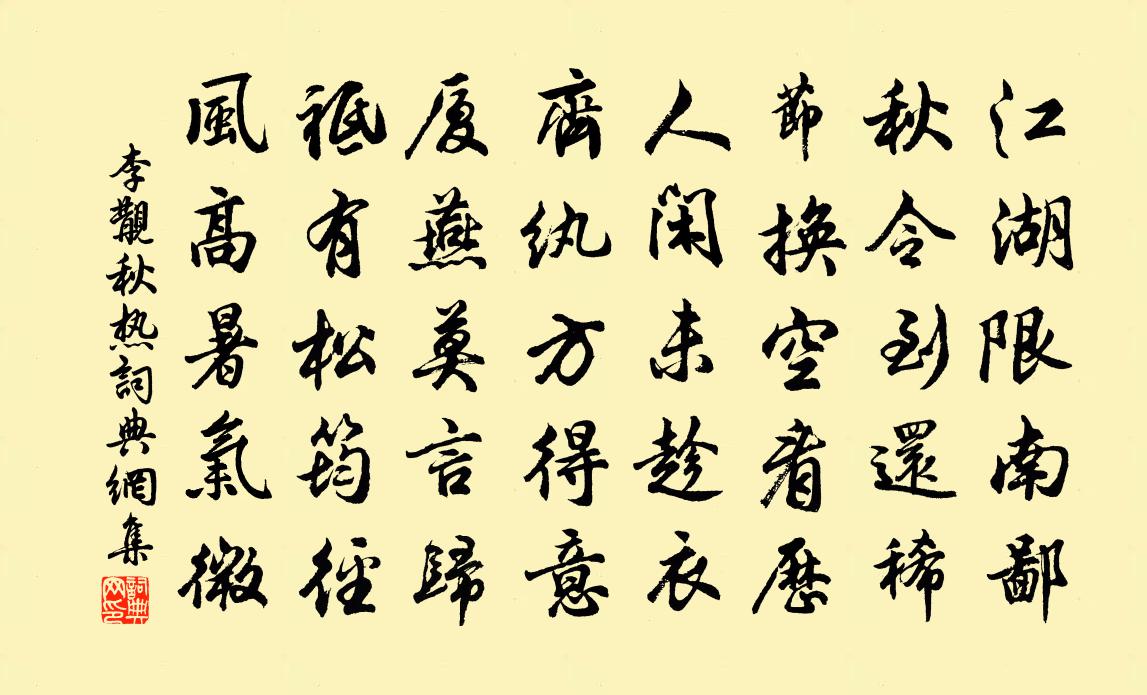 江湖限南鄙
秋令到還稀
節換空看歷
人閑未趁衣
齊紈方得意
厦燕莫言歸
祗有松筠徑
風高暑氣微
李觏秋热詞典網集
詞典網印